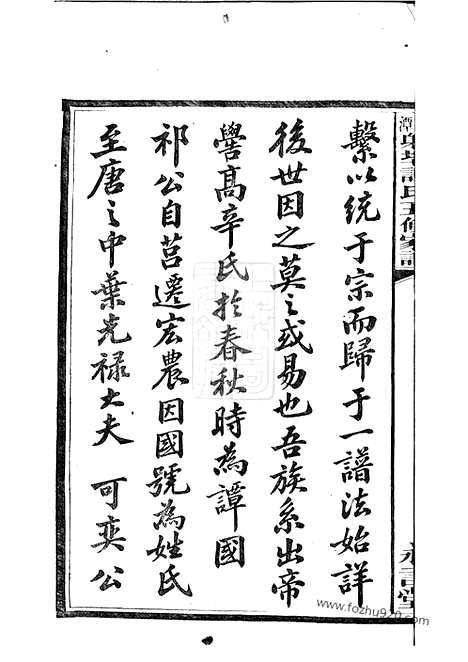 繫以統于宗而歸于一譜法始詳
後世因之莫之或易也吾族系出帝
嚳高辛氏於春秋時為譚國
祁公自莒遷宏農因國號為姓氏
至唐之中葉光禄大夫 可奕公
www.fozhu920.com